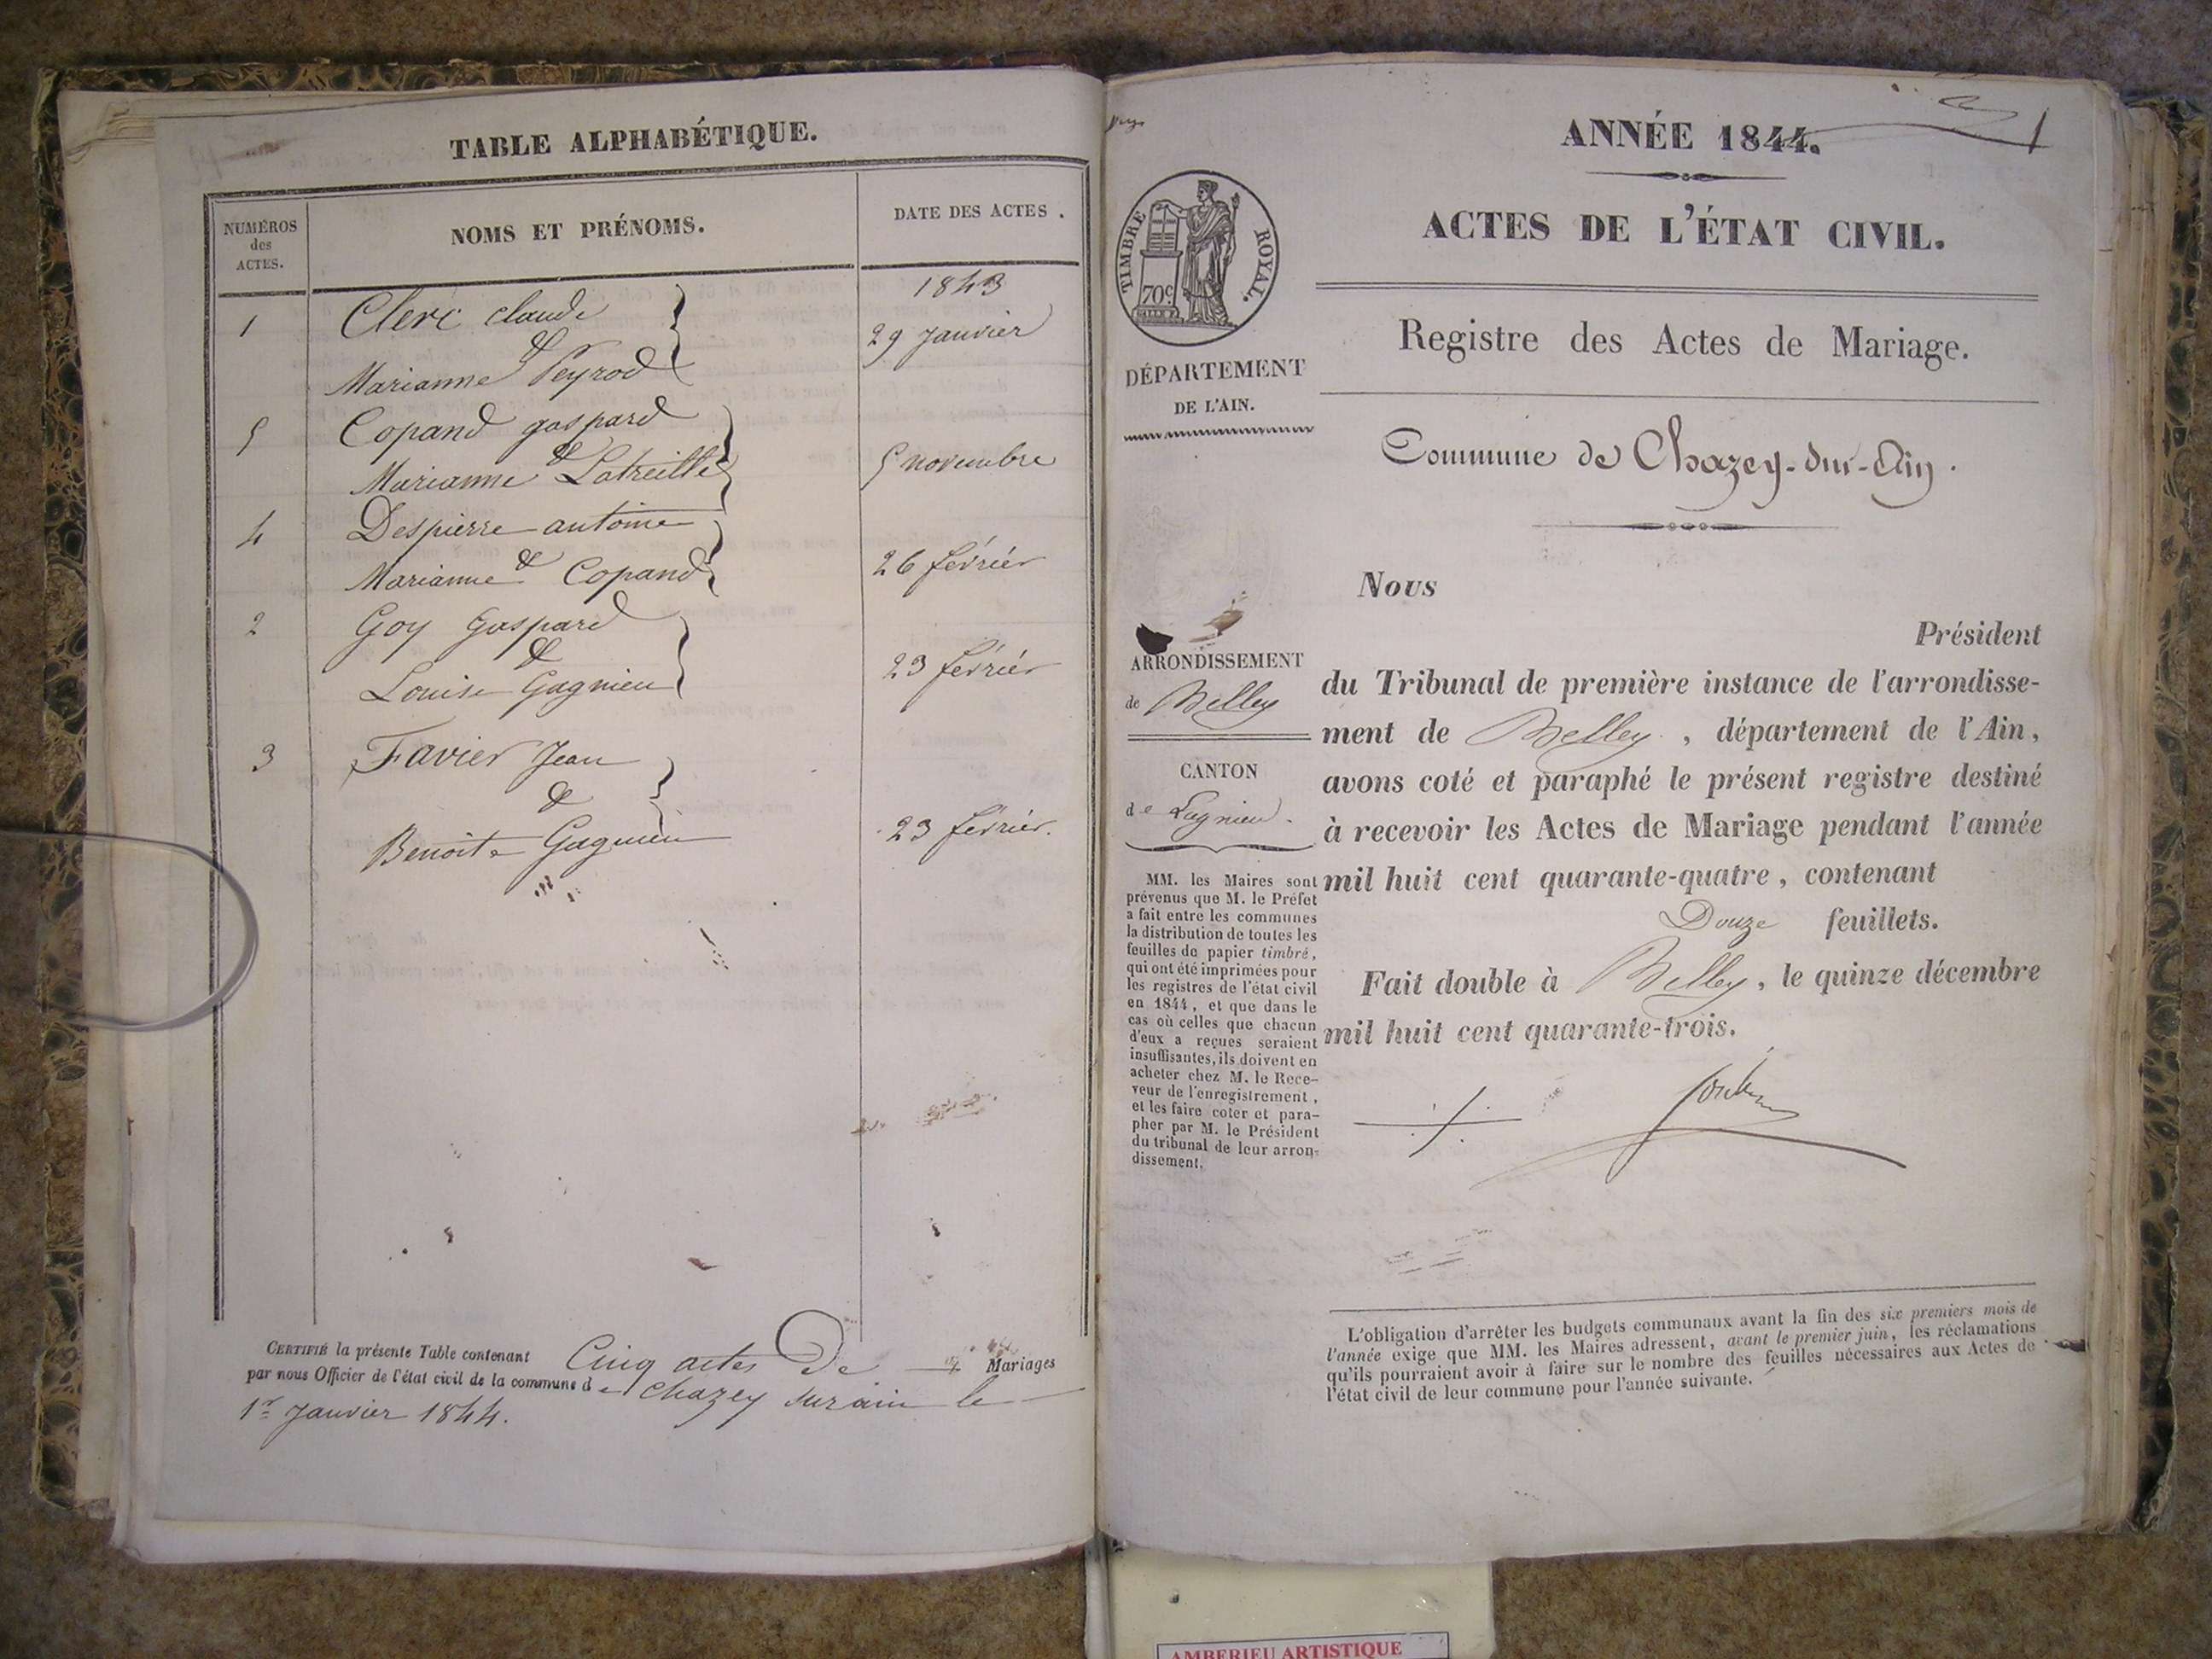 TABLE ALPHABÉTIQUE.
NUMÉROS
des
ACTES.
NOMS ET PRÉNOMS.
DATE DES ACTES.
1843
1 Clerc claude
&
Marianne Peyrod
29 janvier
5 Copand gaspard
&
Marianne Latreille
5 novembre
4 Despierre antoine
&
Marianne Copand
26 février
2 Goy Gaspard
&
Louise Gagnieu
23 février
3 Favier Jean
&
Benoite Gagnieu
23 février.
CERTIFIÉ la présente Table contenant Cinq actes De Mariages
par nous Officier de l'état civil de la commune de chazey sur ain le
1er janvier 1844.
ANNÉE 1844.
ACTES DE L'ÉTAT CIVIL.
TIMBRE ROYAL.
70c
Registre des Actes de Mariage.
DÉPARTEMENT
DE L'AIN.
Commune de Chazey-sur-Ain.
ARRONDISSEMENT
de Belley
CANTON
de Lagnieu.
MM. les Maires sont
prévenus que M. le Préfet
a fait entre les communes
la distribution de toutes les
feuilles de papier timbré,
qui ont été imprimées pour
les registres de l'état civil
en 1844, et que dans le
cas où celles que chacun
d'eux a reçues seraient
insuffisantes, ils doivent en
acheter chez M. le Rece-
veur de l'enregistrement,
et les faire coter et para-
pher par M. le Président
du tribunal de leur arron-
dissement.
Nous
Président
du Tribunal de première instance de l'arrondisse-
ment de Belley, département de l'Ain,
avons coté et paraphé le présent registre destiné
à recevoir les Actes de Mariage pendant l'année
mil huit cent quarante-quatre, contenant
Douze feuillets.
Fait double à Belley, le quinze décembre
mil huit cent quarante-trois.
L'obligation d'arrêter les budgets communaux avant la fin des six premiers mois de
l'année exige que MM. les Maires adressent, avant le premier juin, les réclamations
qu'ils pourraient avoir à faire sur le nombre des feuilles nécessaires aux Actes de
l'état civil de leur commune pour l'année suivante.
AMBERIEU ARTISTIQUE